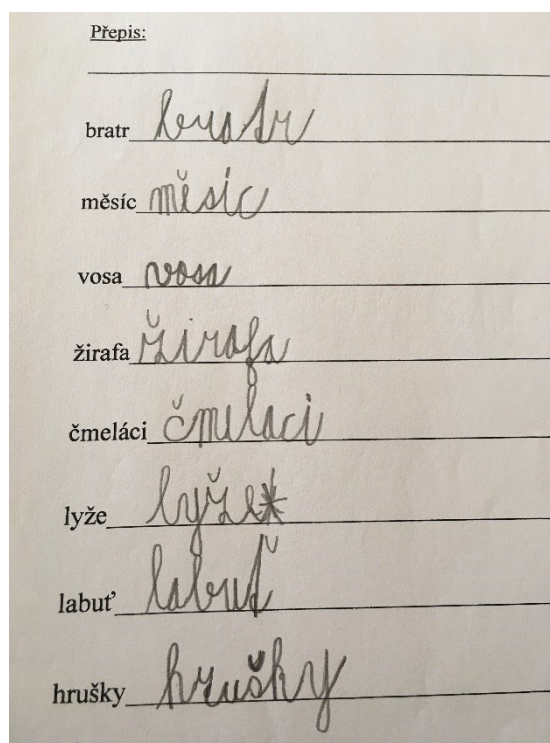 Přepis:
bratr bratr
měsíc měsíc
vosa vosa
žirafa žirafa
čmeláci čmelaci
lyže lyže
labuť labuť
hrušky hrušky